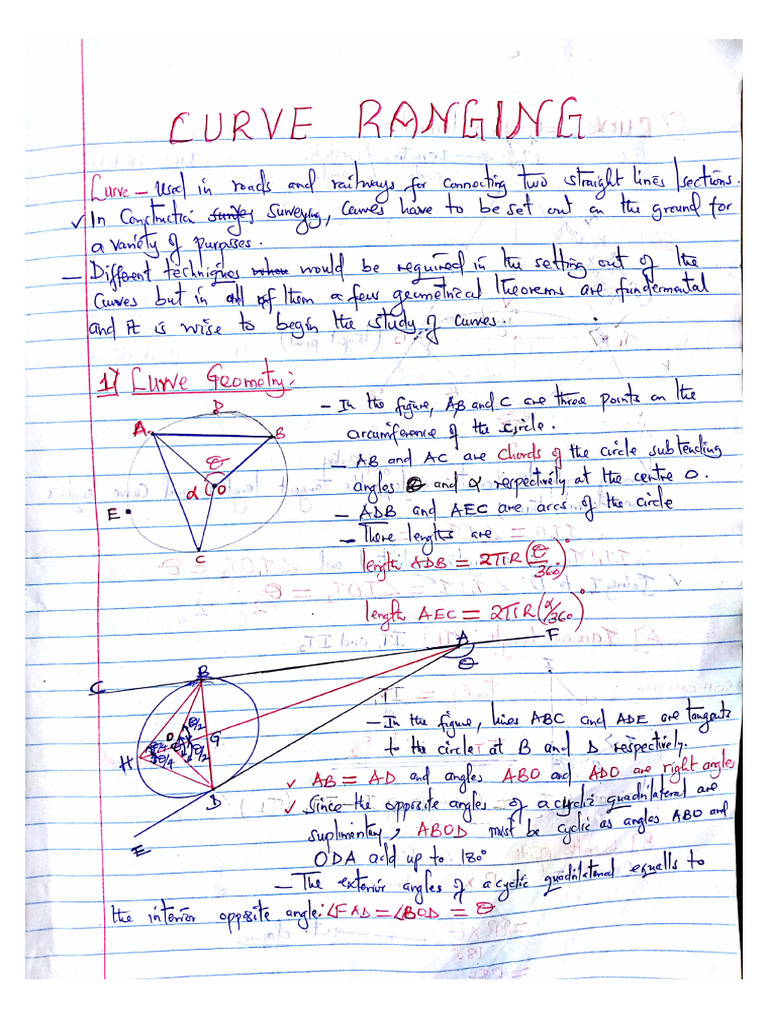 CURVE RANGING
Curve – Used in roads and railways for connecting two straight lines / sections.
✓ In Construction surveying, curves have to be set out on the ground for
a variety of purposes.
– Different techniques would be required in the setting out of the
curves but in all of them a few geometrical theorems are fundermental
and it is wise to begin the study of curves.
1) Curve Geometry:
D
A
B
θ
α
O
E
C
– In the figure, A,B and C are three points on the
circumference of the circle.
– AB and AC are chords of the circle subtending
angles θ and α respectively at the centre O.
– ADB and AEC are arcs of the circle
– There lengths are
length ADB = 2πR(θ/360)°
length AEC = 2πR(α/360)°
A
F
θ
C
B
θ/2
O
G
θ/2
θ/4
θ/4
H
D
E
– In the figure, lines ABC and ADE are tangents
to the circle at B and D respectively.
✓ AB = AD and angles ABO and ADO are right angles
✓ Since the opposite angles of a cyclic quadrilateral are
suplimentary, ABOD must be cyclic as angles ABO and
ODA add up to 180°
– The exterior angles of a cyclic quadrilateral equalls to
the interior opposite angle: ∠FAD = ∠BOD = θ